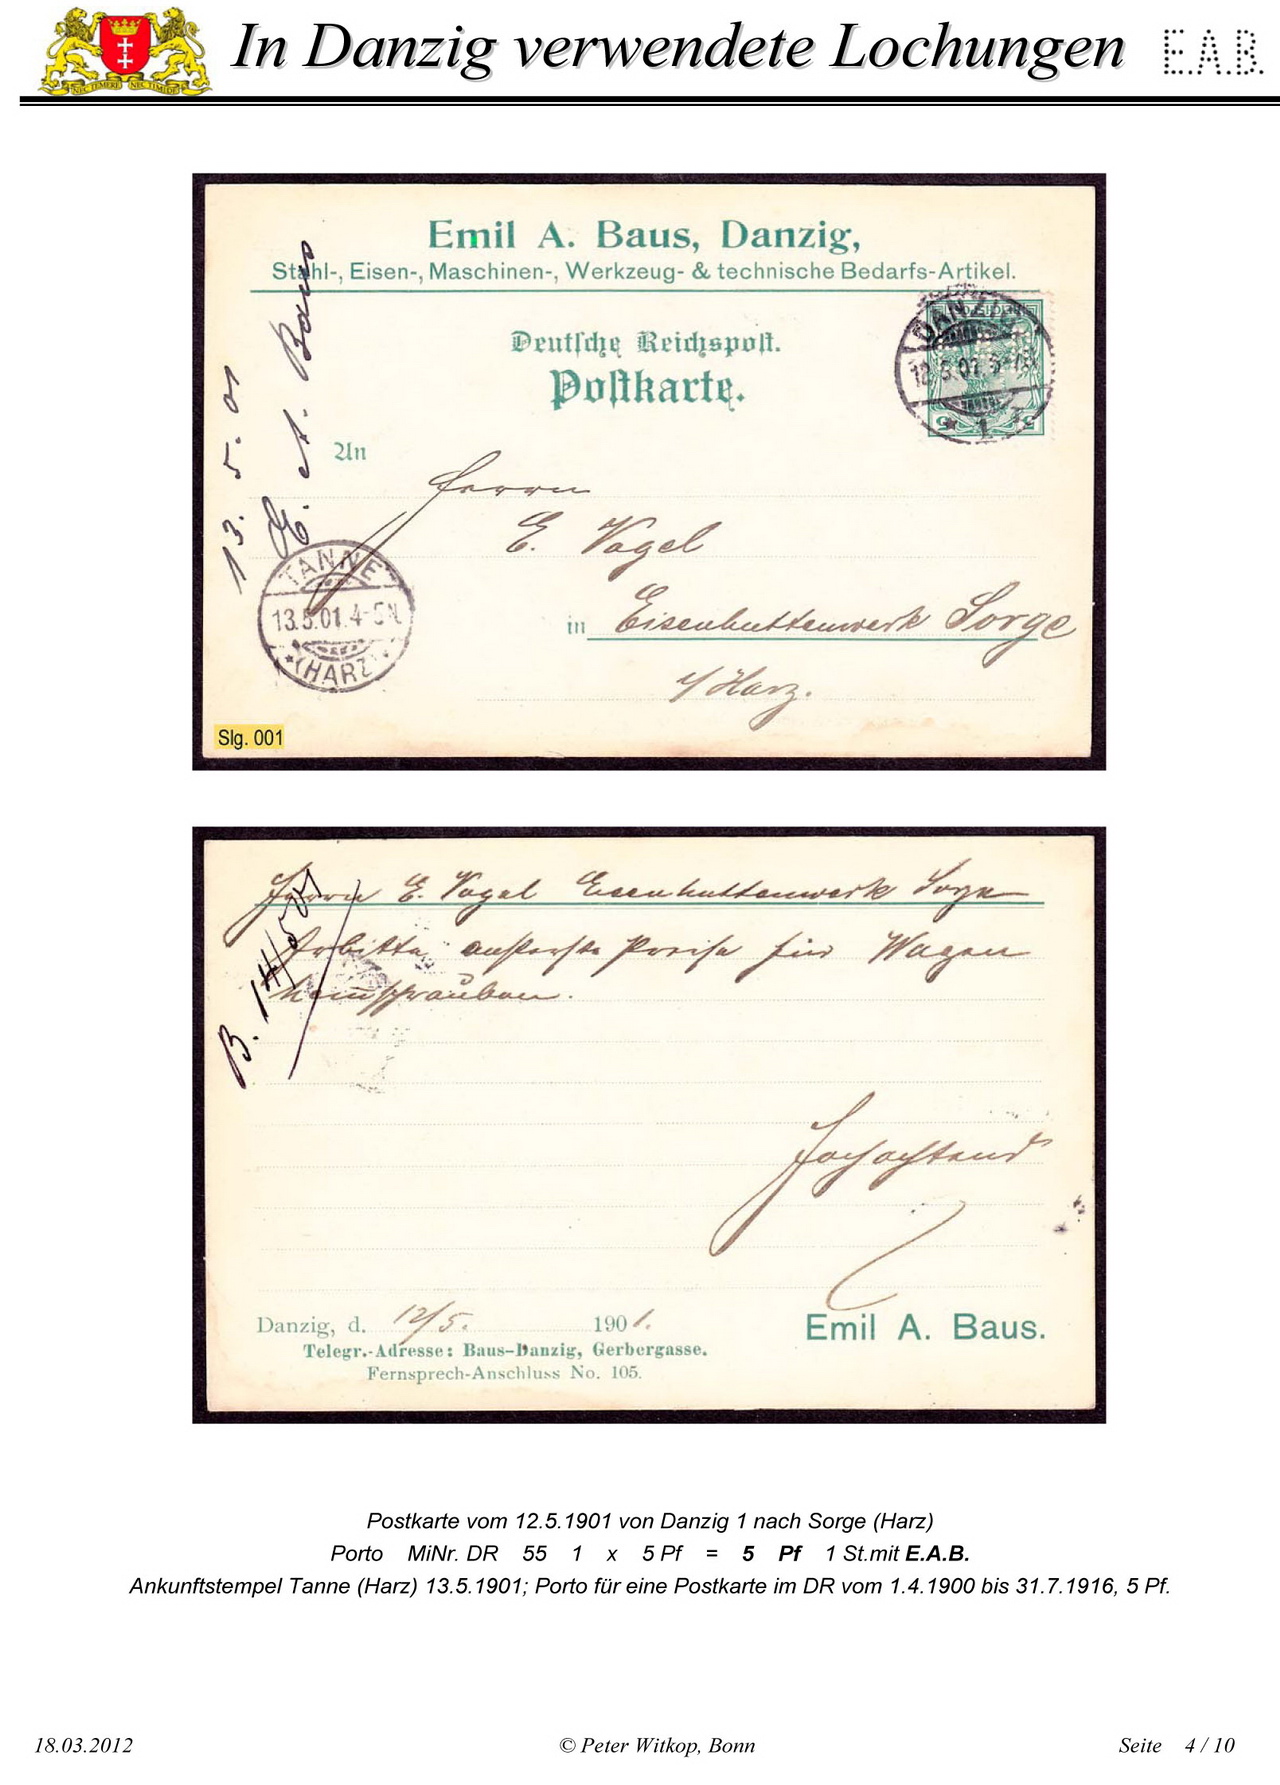 NEC TEMERE NEC TIMIDE
In Danzig verwendete Lochungen
E.A.B.
Emil A. Baus, Danzig,
Stahl-, Eisen-, Maschinen-, Werkzeug- & technische Bedarfs-Artikel.
Deutsche Reichspost.
Postkarte.
DANZIG
12.5.01.
* 1
5 5
13. 5. 01
E. A. Baus
An
Herrn
E. Vogel
in Eisenhüttenwerk Sorge
i/Harz.
TANNE
13.5.01.4-5N.
(HARZ)
Slg. 001
Herrn E. Vogel Eisenhüttenwerk Sorge
Erbitte äußerste Preise für Wagen
schrauben.
B. 14/5 01
Hochachtend
Danzig, d. 12/5. 1901.
Emil A. Baus.
Telegr.-Adresse: Baus-Danzig, Gerbergasse.
Fernsprech-Anschluss No. 105.
Postkarte vom 12.5.1901 von Danzig 1 nach Sorge (Harz)
Porto MiNr. DR 55 1 x 5 Pf = 5 Pf 1 St.mit E.A.B.
Ankunftstempel Tanne (Harz) 13.5.1901; Porto für eine Postkarte im DR vom 1.4.1900 bis 31.7.1916, 5 Pf.
18.03.2012
© Peter Witkop, Bonn
Seite 4 / 10